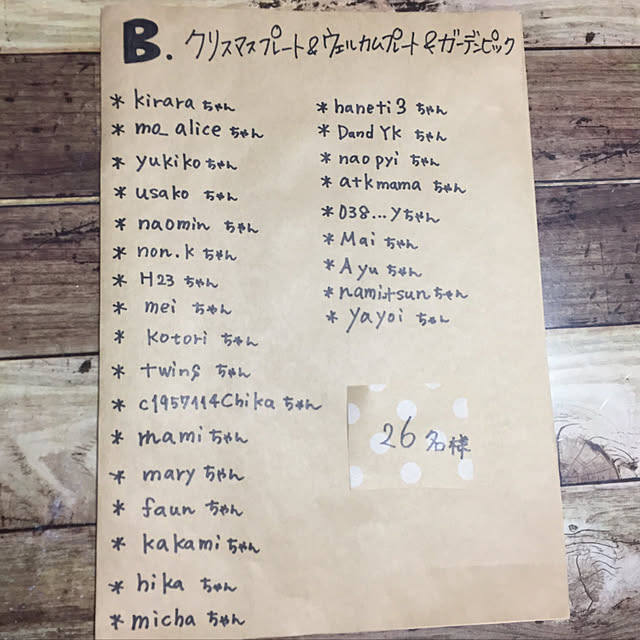 B. クリスマスプレート&ウェルカムプレート&ガーデンピック
* kirara ちゃん
* mo_alice ちゃん
* yukiko ちゃん
* usako ちゃん
* naomin ちゃん
* non.k ちゃん
* H23 ちゃん
* mei ちゃん
* kotori ちゃん
* twins ちゃん
* c1957114Chika ちゃん
* mami ちゃん
* mary ちゃん
* faun ちゃん
* kakami ちゃん
* hika ちゃん
* micha ちゃん
* haneti3 ちゃん
* Dand YK ちゃん
* naopyi ちゃん
* atkmama ちゃん
* 038...yちゃん
* Mai ちゃん
* Ayu ちゃん
* nami+sunちゃん
* yayoi ちゃん
26名様